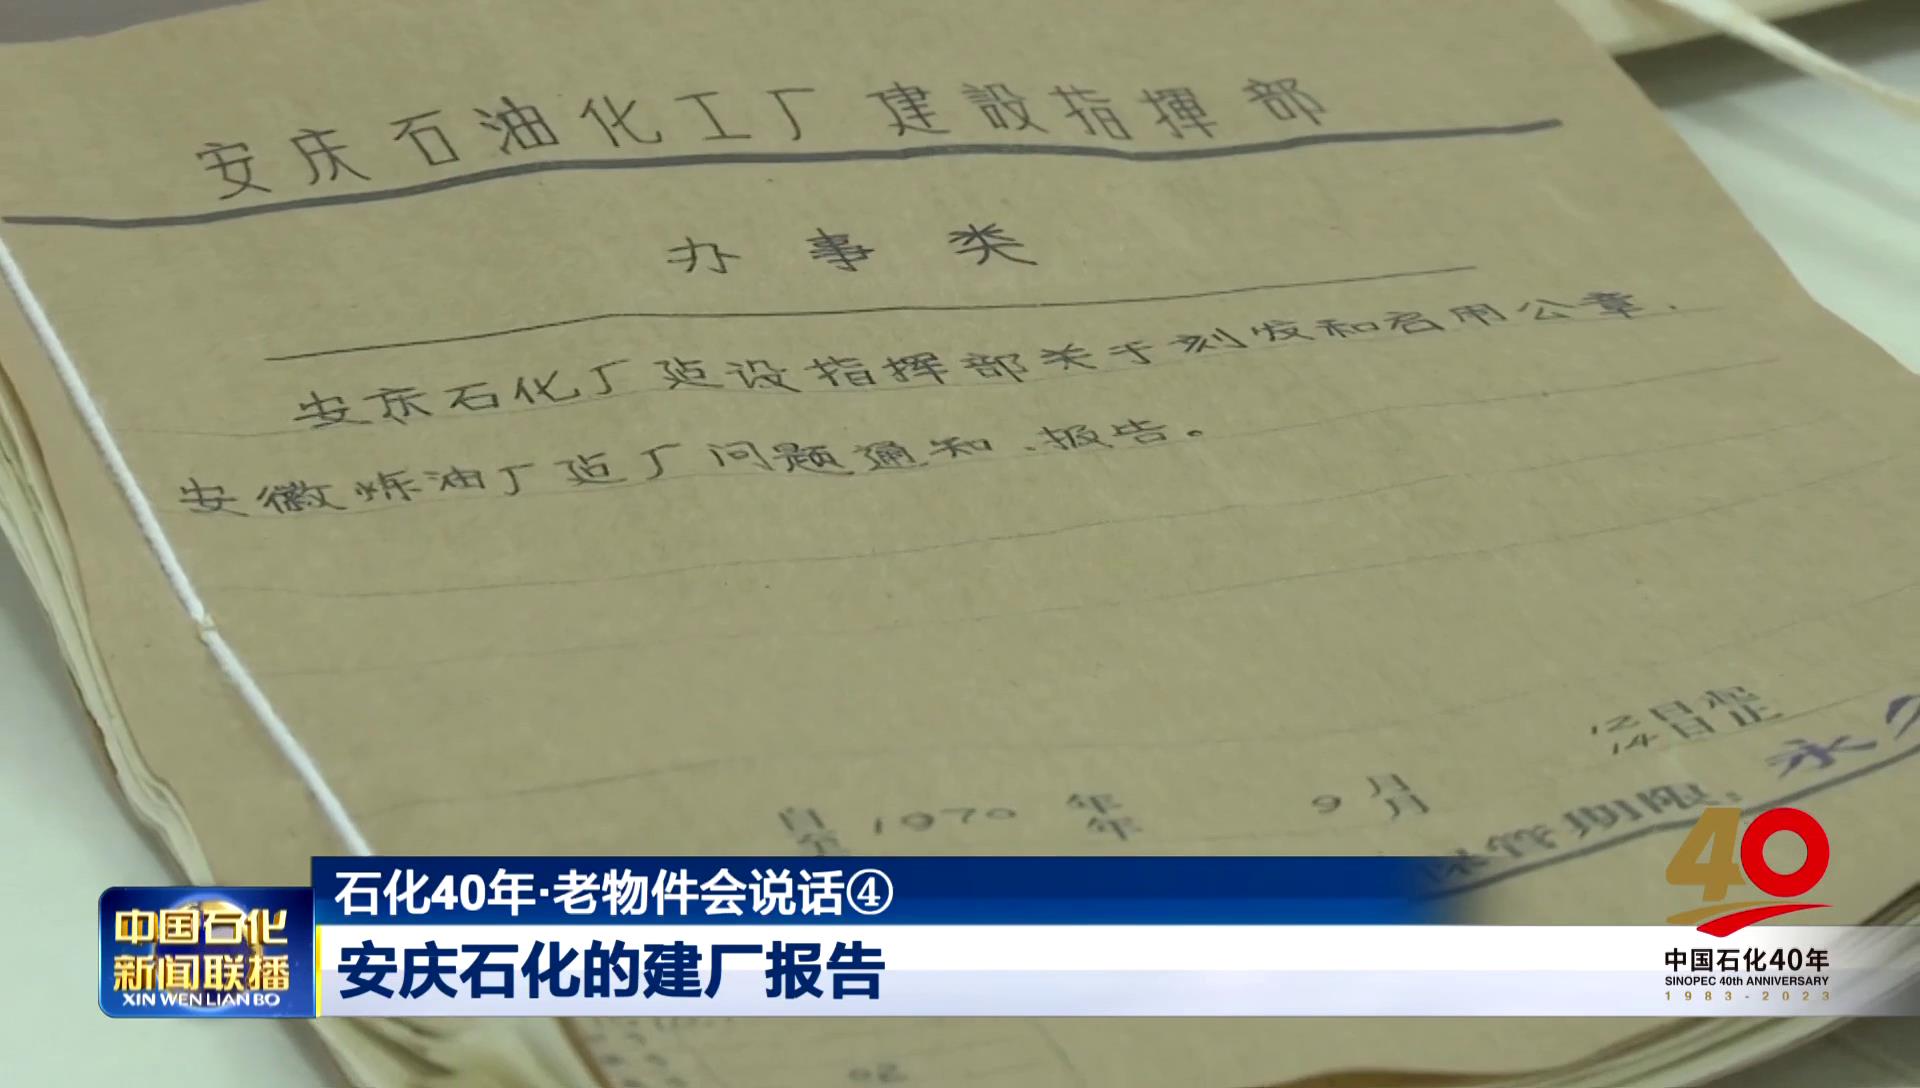 安庆石油化工厂建設指揮部
办事类
安庆石化厂建设指挥部关于刻发和启用公章.
安徽炼油厂建厂问题通知、报告。
12日起
14日止
自1970年9月
年 月
保管期限: 永久
石化40年·老物件会说话④
安庆石化的建厂报告
中国石化
新闻联播
XIN WEN LIAN BO
40
中国石化40年
SINOPEC 40th ANNIVERSARY
1983-2023
02